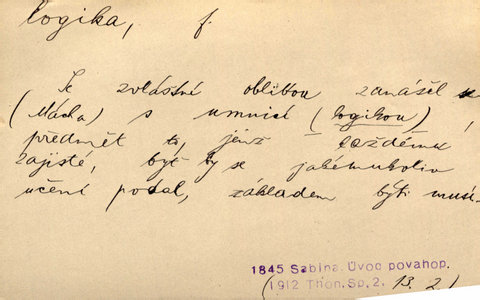 logika, f.
Se zvláštní oblibou zanášel se
(Mácha) s umnicí (logikou),
předmět to, jenž každému
zajisté, byť by se jakémukoliv
učení podal, základem býti musí.
1845 Sabina. Úvod povahop.
(1912 Thon. Sp. 2. 13. 2)